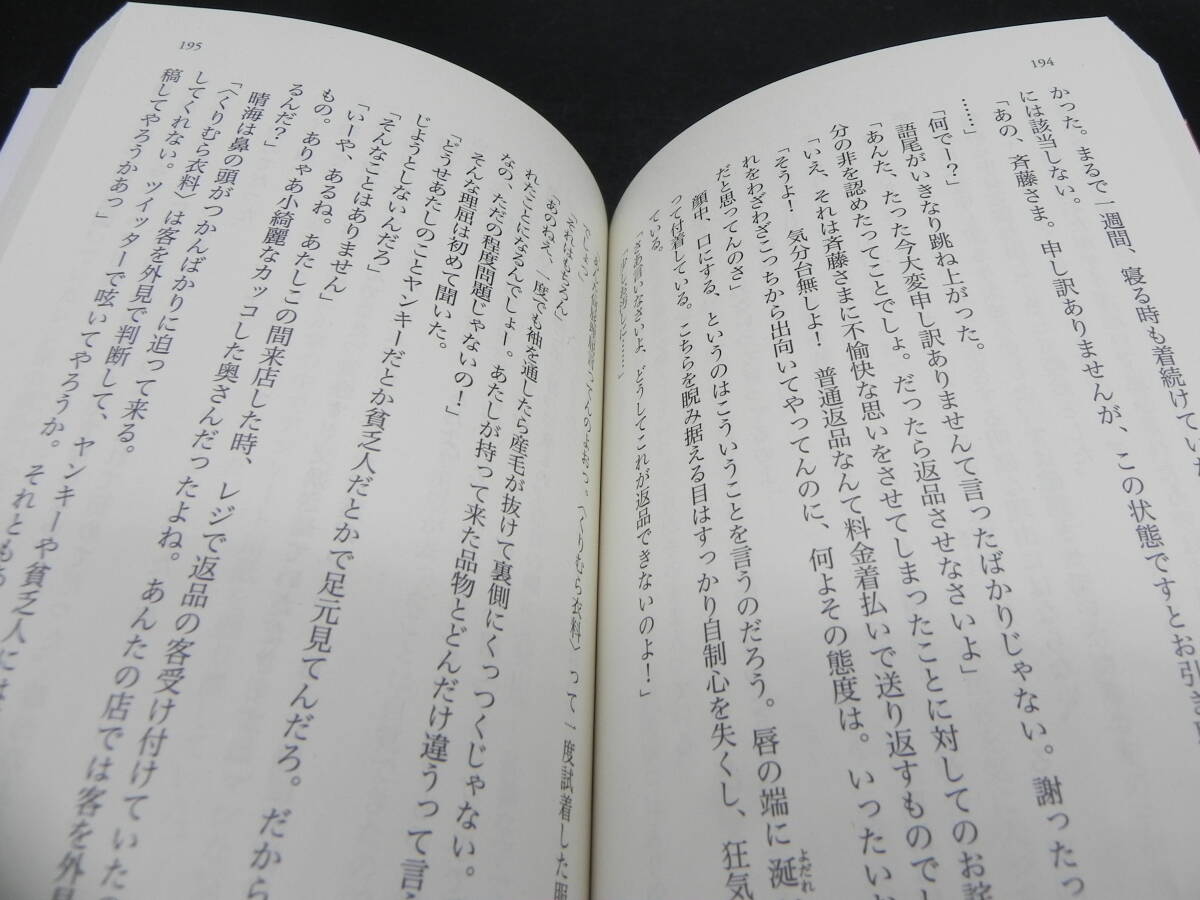 194
かった。まるで一週間、寝る時も着続けていた
には該当しない。
「あの、斉藤さま。申し訳ありませんが、この状態ですとお引き
……」
「何でー？」
語尾がいきなり跳ね上がった。
「あんた、たった今大変申し訳ありませんて言ったばかりじゃない。謝ったっ
分の非を認めたってことでしょ。だったら返品させなさいよ」
「いえ、それは斉藤さまに不愉快な思いをさせてしまったことに対してのお詫
「そうよ！　気分台無しよ！　普通返品なんて料金着払いで送り返すものでし
れをわざわざこっちから出向いてやってんのに、何よその態度は。いったい
だと思ってんのさ」
顔中、口にする、というのはこういうことを言うのだろう。唇の端に涎
よだれ
って付着している。こちらを睨み据える目はすっかり自制心を失くし、狂気
ている。
「さあ言いなさいよ、どうしてこれが返品できないのよ！」
195
〈くりむら衣料〉って一度試着した服
でしょ」
「それはもちろん」
「あのねえ、一度でも袖を通したら産毛が抜けて裏側にくっつくじゃない。
なの、ただの程度問題じゃないの！」
そんな理屈は初めて聞いた。
「どうせあたしのことヤンキーだとか貧乏人だとかで足元見てんだろ。だから
じようとしないんだろ」
「そんなことはありません」
「いーや、あるね。あたしこの間来店した時、レジで返品の客受け付けていた
もの。ありゃあ小綺麗なカッコした奥さんだったよね。あんたの店では客を外見
るんだ？」
晴海は鼻の頭がつかんばかりに迫って来る。
「〈くりむら衣料〉は客を外見で判断して、ヤンキーや貧乏人には
してくれない。ツイッターで呟いてやろうか。それとも
稿してやろうかあっ」